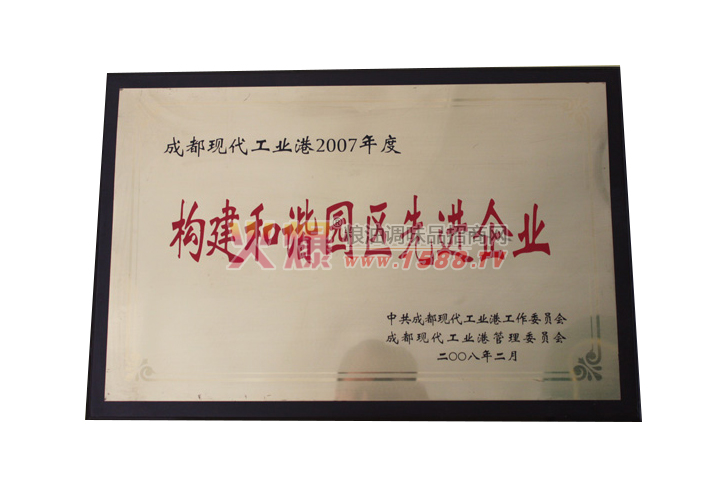 成都现代工业港2007年度
构建和谐园区先进企业
火爆 调味品招商网
www.1588.TV
中共成都现代工业港工作委员会
成都现代工业港管理委员会
二〇〇八年二月